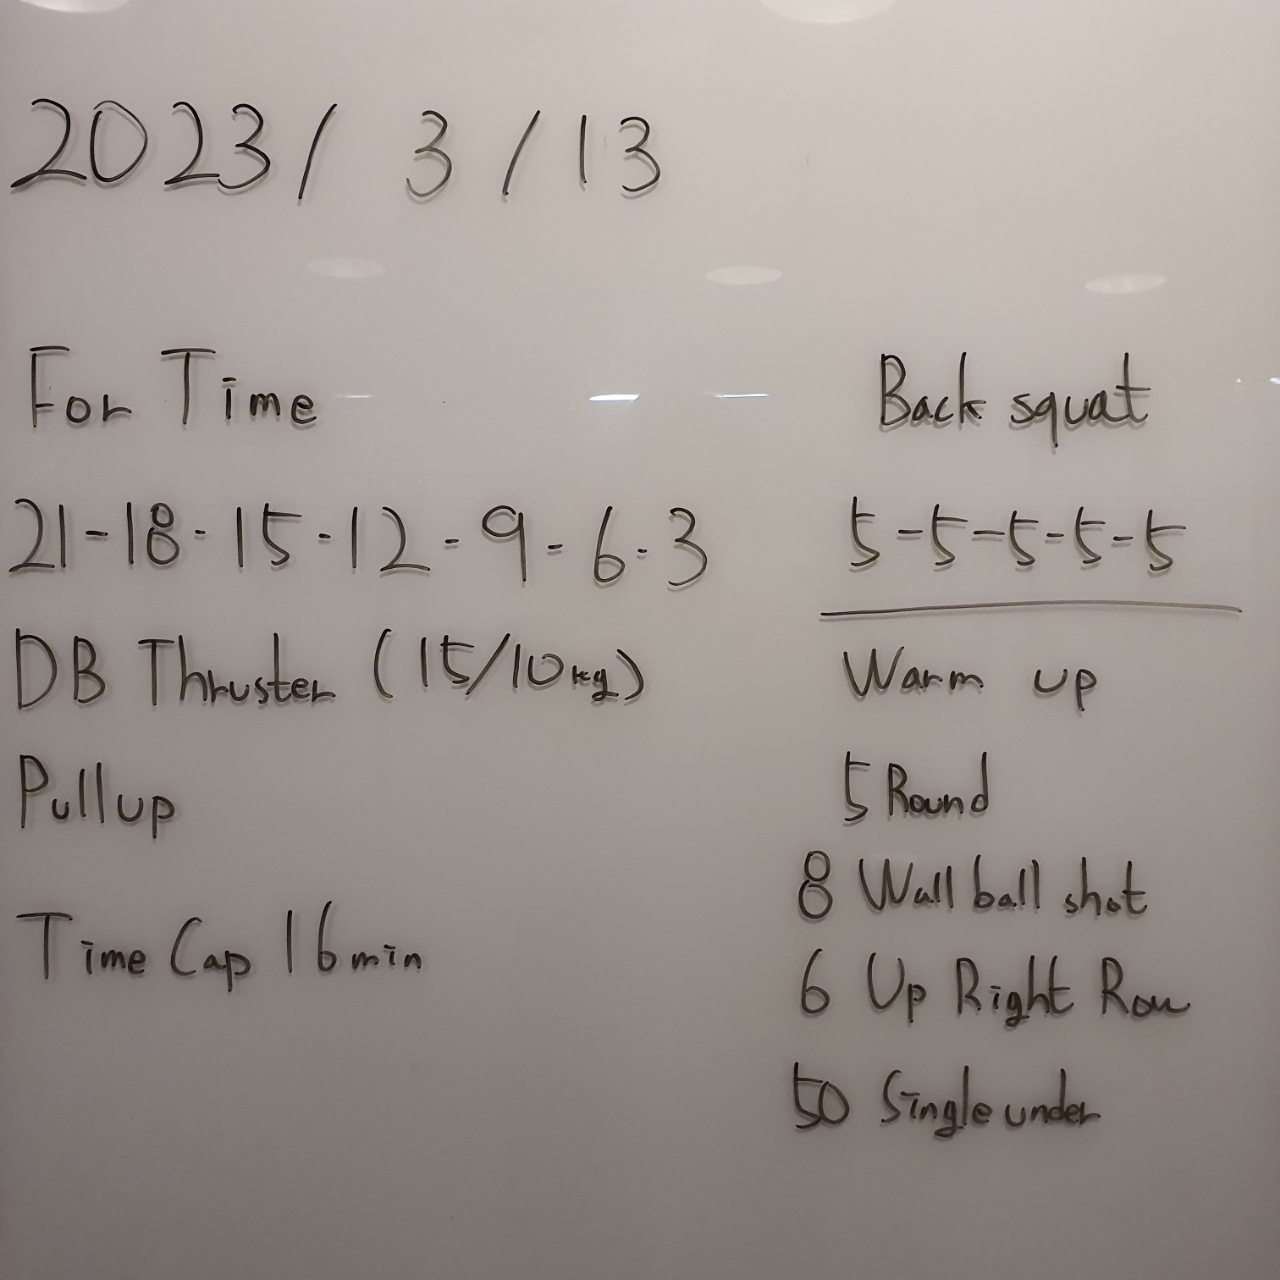 2023/ 3 / 13
For Time
21-18-15-12-9-6-3
DB Thruster (15/10kg)
Pull up
Time Cap 16min
Back squat
5-5-5-5-5
Warm up
5 Round
8 Wall ball shot
6 Up Right Row
50 Single under